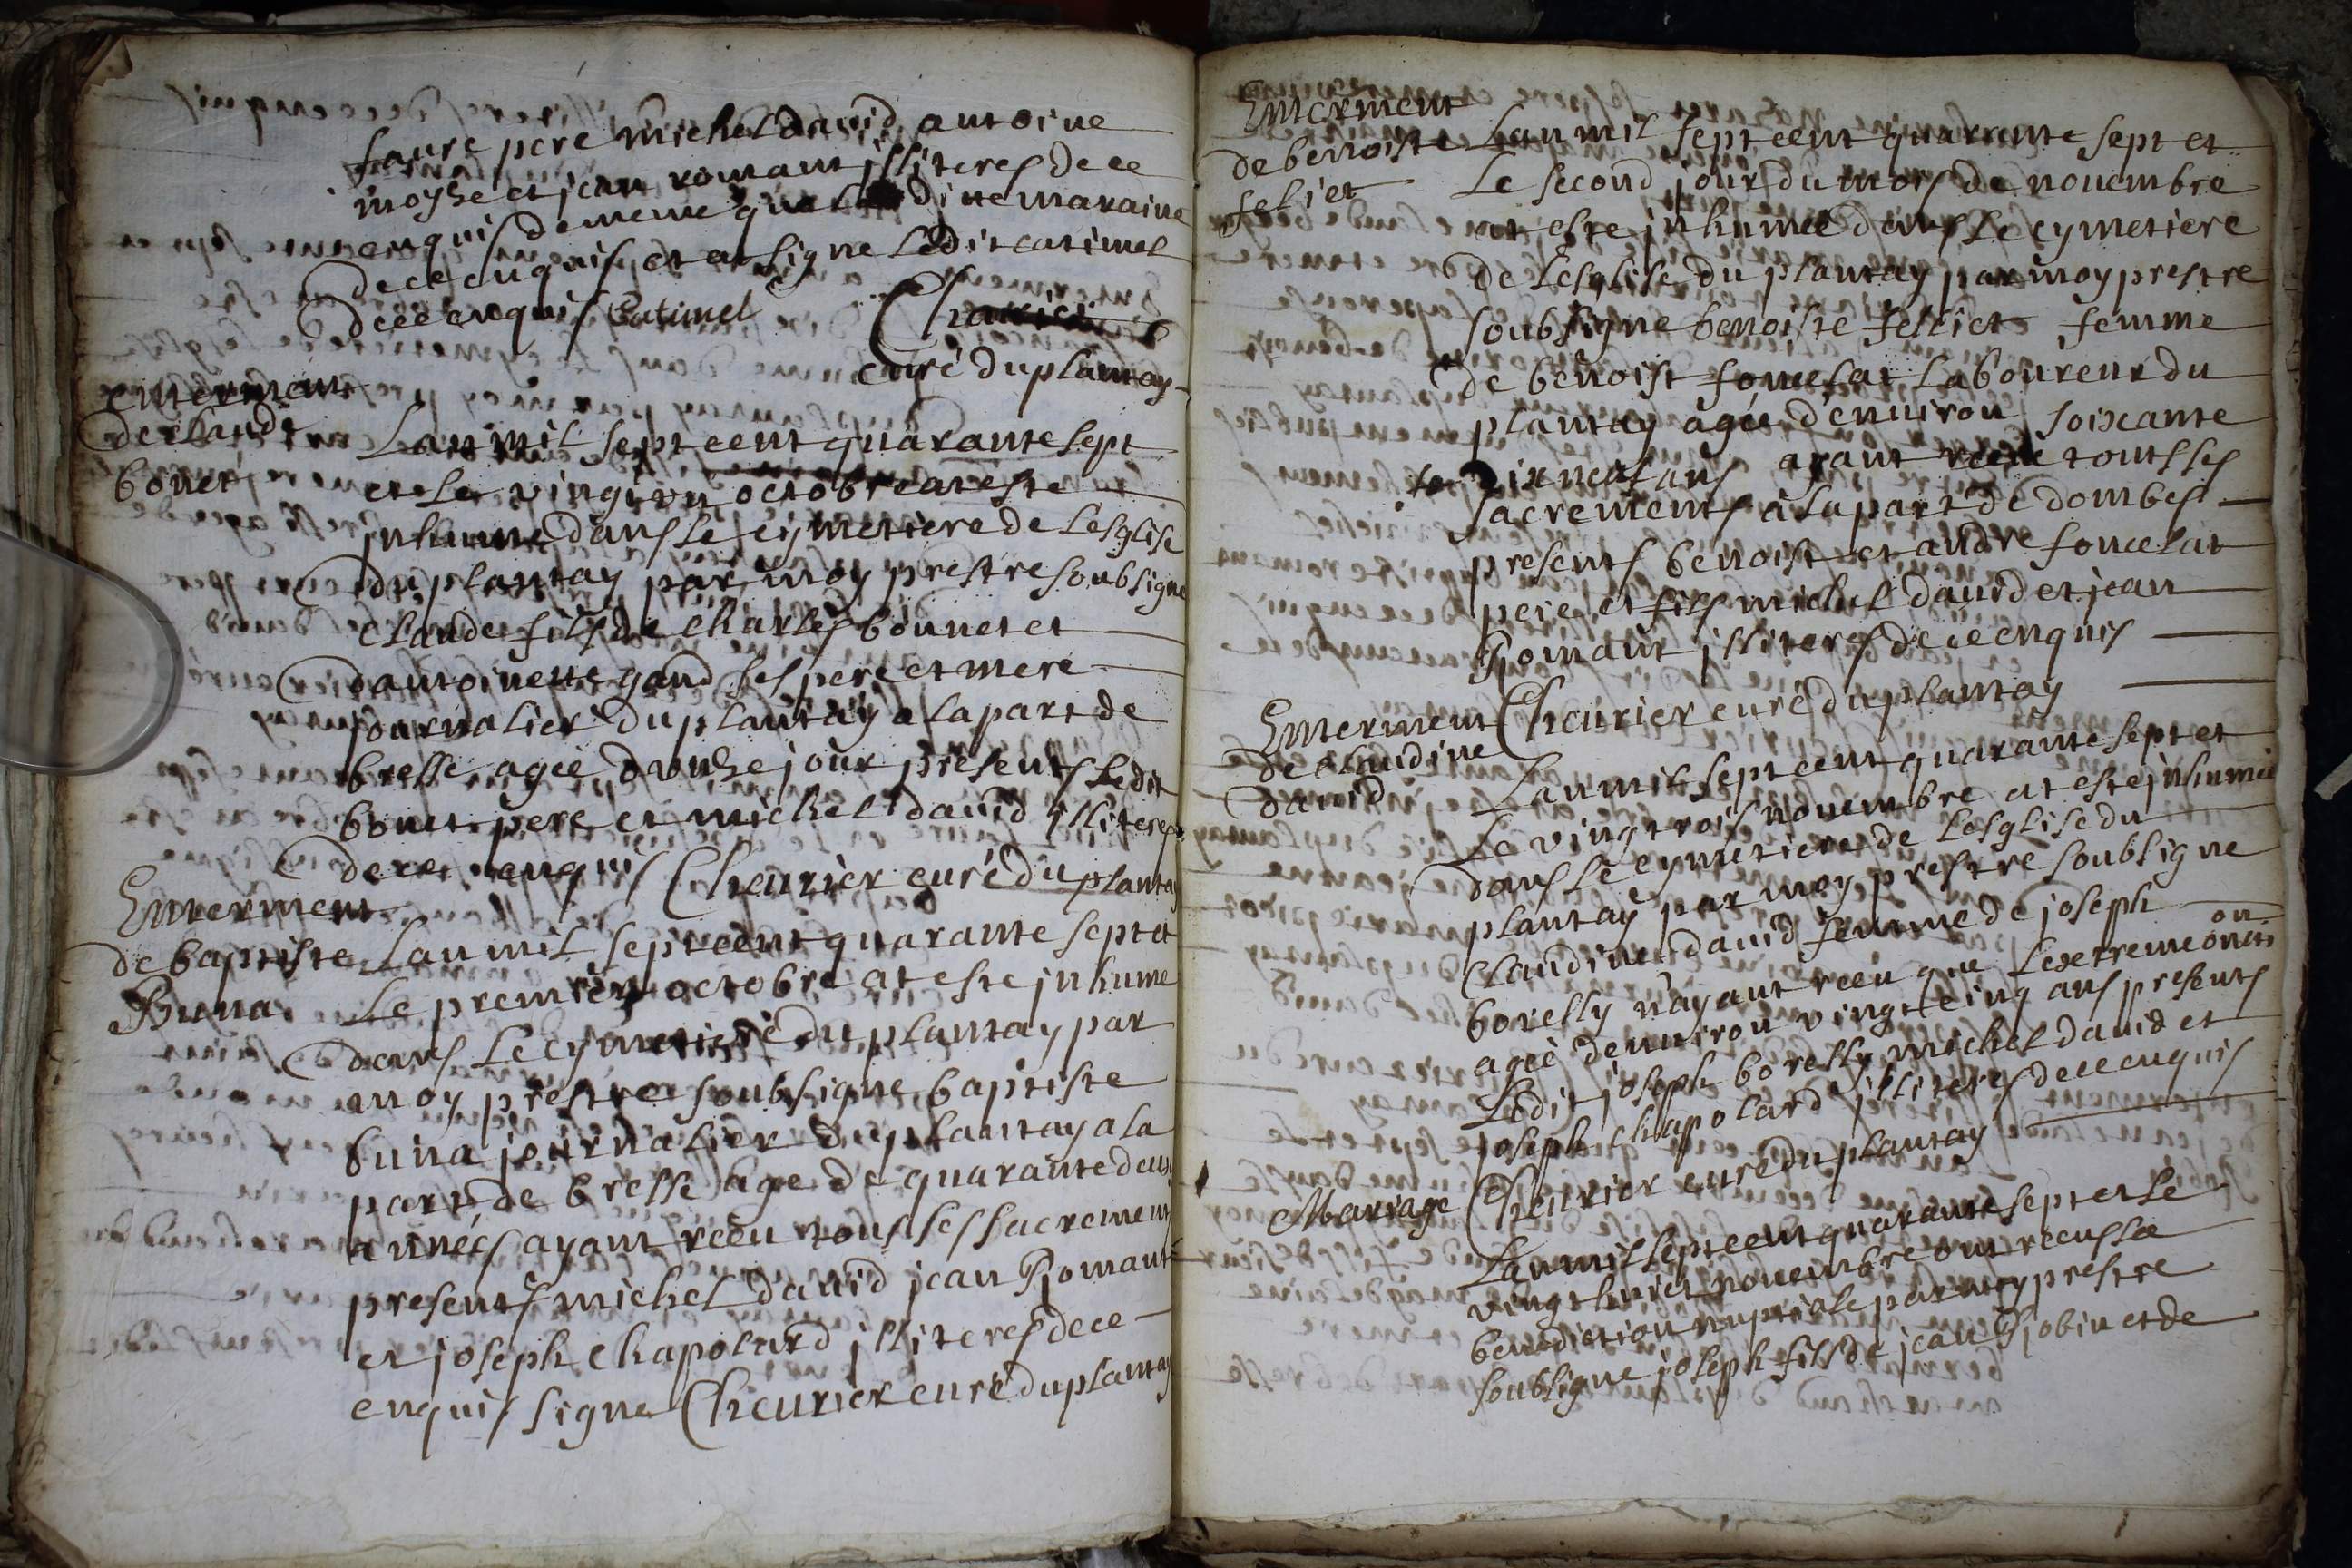 faure pere michel david antoine
moyse et jean romant jlliteres de ce
enquis de meme que la dite maraine
de ce enquis et at signe ledit catimel
de ce enquis Catimel Cheurier
curé du plantay
enterrement
de claude
bonet
Lan mil sept cent quarante sept
et le vingt un octobre at este
jnhume dans le cymetiere de Lesglise
du plantay par moy prestre soubsigne
claude fils de charles bonnet et
dantoinette gand ses pere et mere
journalier du plantay a la part de
bresse agée jour presents Ledit
bonet pere et michel david jlliteres
de ce enquis Cheurier curé du plantay
Enterrement
de baptiste
Buna
Lan mil sept cent quarante sept et
Le premier octobre at este jnhume
dans Le cymetiere du plantay par
moy prestre soubsigne baptiste
buna journalier du plantay a la
part de bresse age de quarante deux
années ayant receu tous ses sacrements
presents michel david jean Romant
et joseph chapolard jlliteres de ce
enquis signe Cheurier curé du plantay
Enterment
de benoiste
felier
Lan mil sept cent quarante sept et
Le second jour du mois de novembre
at este jnhumée dans Le cymetiere
de Lesglise du plantay par moy prestre
soubsigne benoiste felliet femme
de benoist foncelat Laboureur du
plantay agée denuiron soixante
dixneuf ans ayant receu touts ses
sacrements a la part de dombes
presents benoist et andre foncelat
pere et fils michel david et jean
Romant jlliteres de ce enquis
Cheurier curé du plantay
Enterment
de claudine
david
Lan mil sept cent quarante sept et
Le vingt trois nouembre at este jnhumée
dans Le cymetiere de Lesglise du
plantay par moy prestre soubsigne
Claudine david femme de joseph
borelly n'ayant receu que Lextreme onction
agée denuiron vingt cinq ans presents
Ledit joseph borelly michel david et
joseph chapolard jlliteres de ce enquis
Cheurier curé du plantay
Mariage
Lan mil sept cent quarante sept et Le
vingt huict nouembre ont receus La
benediction nuptiale par moy prestre
soubsigne joseph fils de jean Robin et de